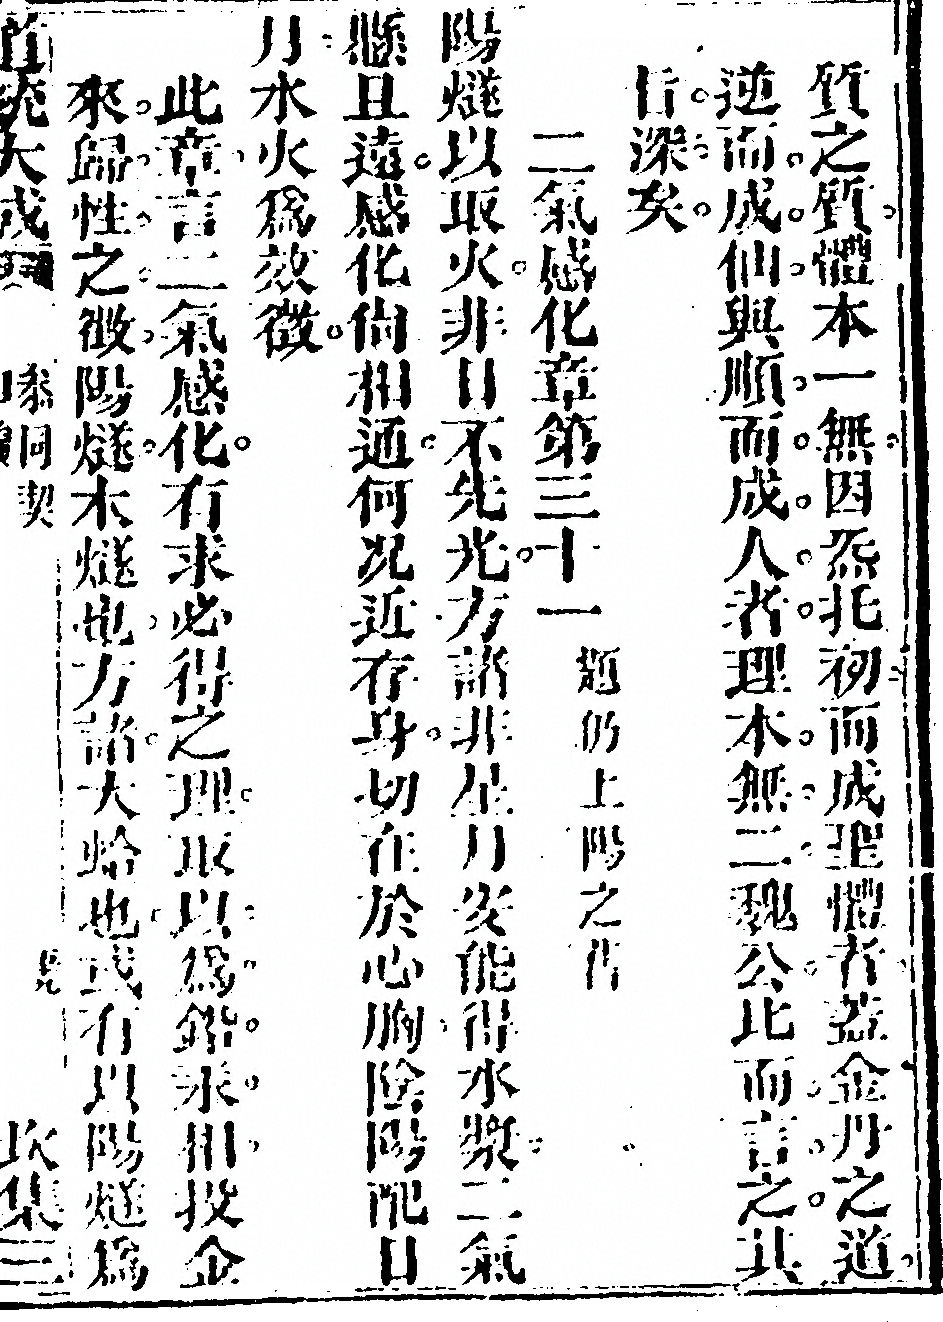 質之質體本一無因炁托初而成聖體者蓋金丹之道
逆而成仙與順而成人者理本無二魏公比而言之其
旨深矣
二氣感化章第三十一 題仍上陽之舊
陽燧以取火非日不先光方諸非星月安能得水漿二氣
懸且遠感化尙相通何況近存身切在於心胸陰陽配日
月水火爲效徵
此章言二氣感化有求必得之理取以爲鉛汞相投金
來歸性之徵陽燧木燧也方諸大蛤也或有以陽燧爲
道統大成 參同契 坎集三